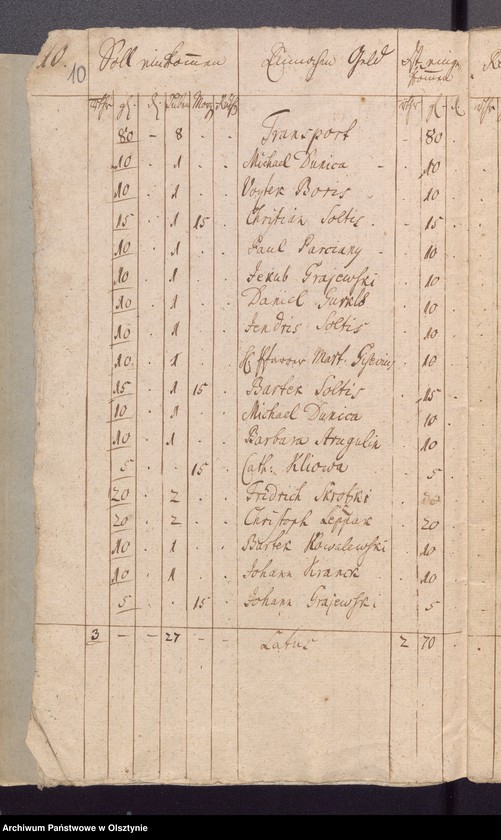 10. Soll einkommen Geld
10
80 - 8 Transport - 80
10 . 1 . . Michael Dunica - 10
10 . 1 . . Woytek Boris . 10
15 . 1 15 . Christian Soltis . 15
10 . 1 . . Paul Parciany . 10
10 . 1 . . Jekub Grajewski . 10
10 . 1 . . Daniel . 10
10 . 1 . . Jendris Soltis . 10
10 . 1 . . Mart. . 10
15 . 1 15 . Bartek Soltis . 15
10 . 1 . . Michael Dunica . 10
10 . 1 . . Barbara . 10
5 . . 15 . Cath: Kliowa . 5
20 . 2 . . Fridrich Skrotzki . 20
20 . 2 . . Christoph Leppak . 20
10 . 1 . . Bartek Kowalewski . 10
10 . 1 . . Johann Kranck . 10
5 . . 15 . Johann Grajewski . 5
3 - - 27 - - Latus 2 70 .
Archiwum Państwowe w Olsztynie